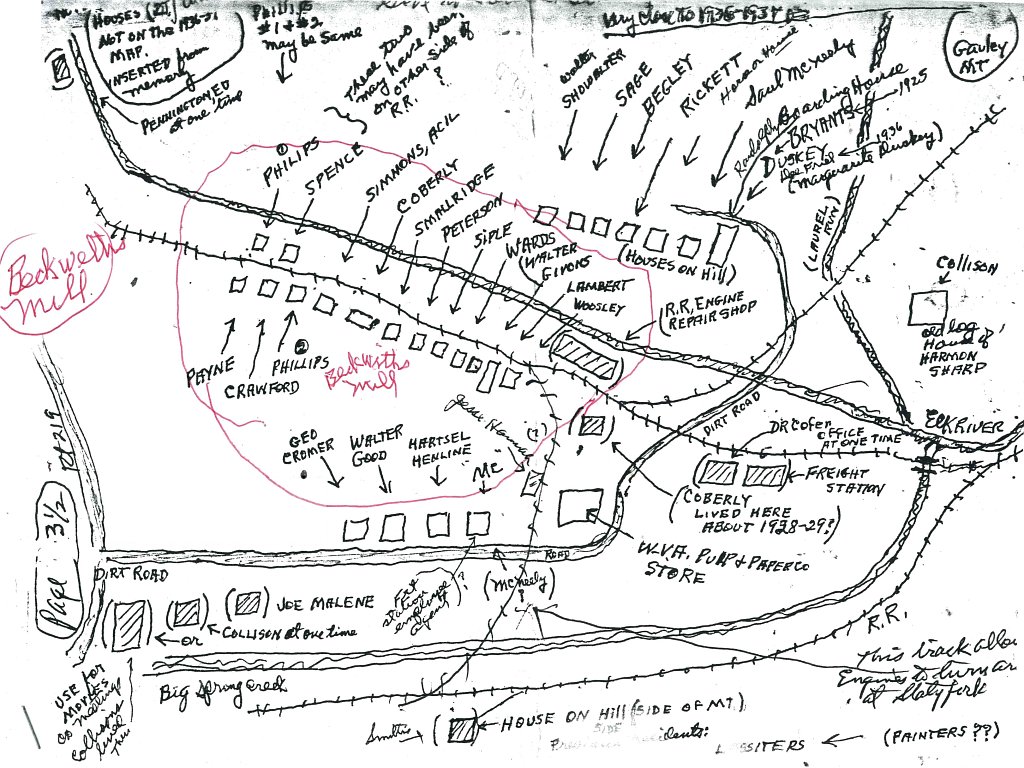 HOUSES
NOT ON THE
MAP.
INSERTED from
memory
PENNINGTON ED
at one time
PHILLIPS
#1 & #2
may be same
These two
may have been
on other side of
R.R. ?
very close to 1936-1937
Gauley
MT
walter
SHOWALTER
SAGE
BEGLEY
RICKETT
Hoover House
Saul McNeely
Boarding House
BRYANTS
1925
DUSKEY
1936
(Marguarite Duskey)
(LAUREL
RUN)
①
PHILIPS
SPENCE
SIMMONS, ACIL
COBERLY
SMALLRIDGE
PETERSON
SIPLE
WARDS
(WALTER
GIVONS
LAMBERT
WOOSLEY
(HOUSES ON HILL)
(R.R. ENGINE
REPAIR SHOP
COLLISON
old log
House of
HARMON
SHARP
Beckwith's
Mill
PAYNE
CRAWFORD
②
PHILLIPS
Beckwiths
Mill
RT 219
GEO
CROMER
WALTER
GOOD
HARTSEL
HENLINE
"MC"
(?)
DIRT ROAD
ELK RIVER
OFFICE
AT ONE TIME
FREIGHT
STATION
(COBERLY
LIVED HERE
ABOUT 1928-29?)
W.VA. PULP & PAPER CO
STORE
ROAD
DIRT ROAD
Page 3 1/2
(McNeely)
?
station
employee
agent
?
JOE MALENE
or
COLLISON at one time
R.R.
This track
Engines to turn
at Slaty fork
USE for
MOVIES
or meetings
Collisons
Big Spring
HOUSE ON HILL (SIDE OF MT)
SIDE
(PAINTERS ??)